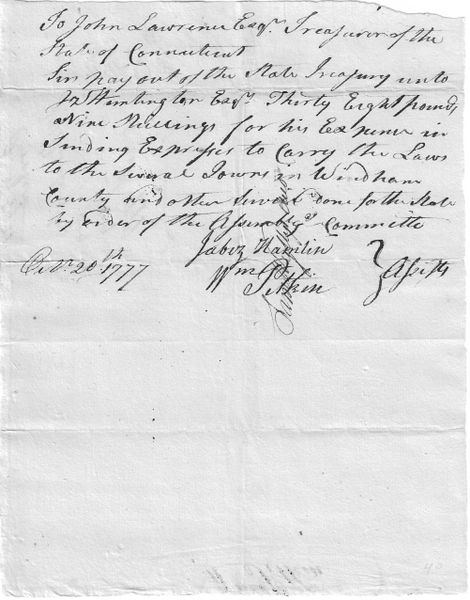 To John Lawrence Esqr. Treasurer of the
State of Connecticut
Sir pay out of the State Treasury unto
Huntington Esqr. Thirty Eight pounds
Nine Shillings for his Expence in
Sending Expresses to Carry the Laws
to the Several Towns in Windham
County and other Servis done for the State
by order of the Assembly Committe
Jabez Hamlin
Octr. 20th 1777 Wm Pitkin